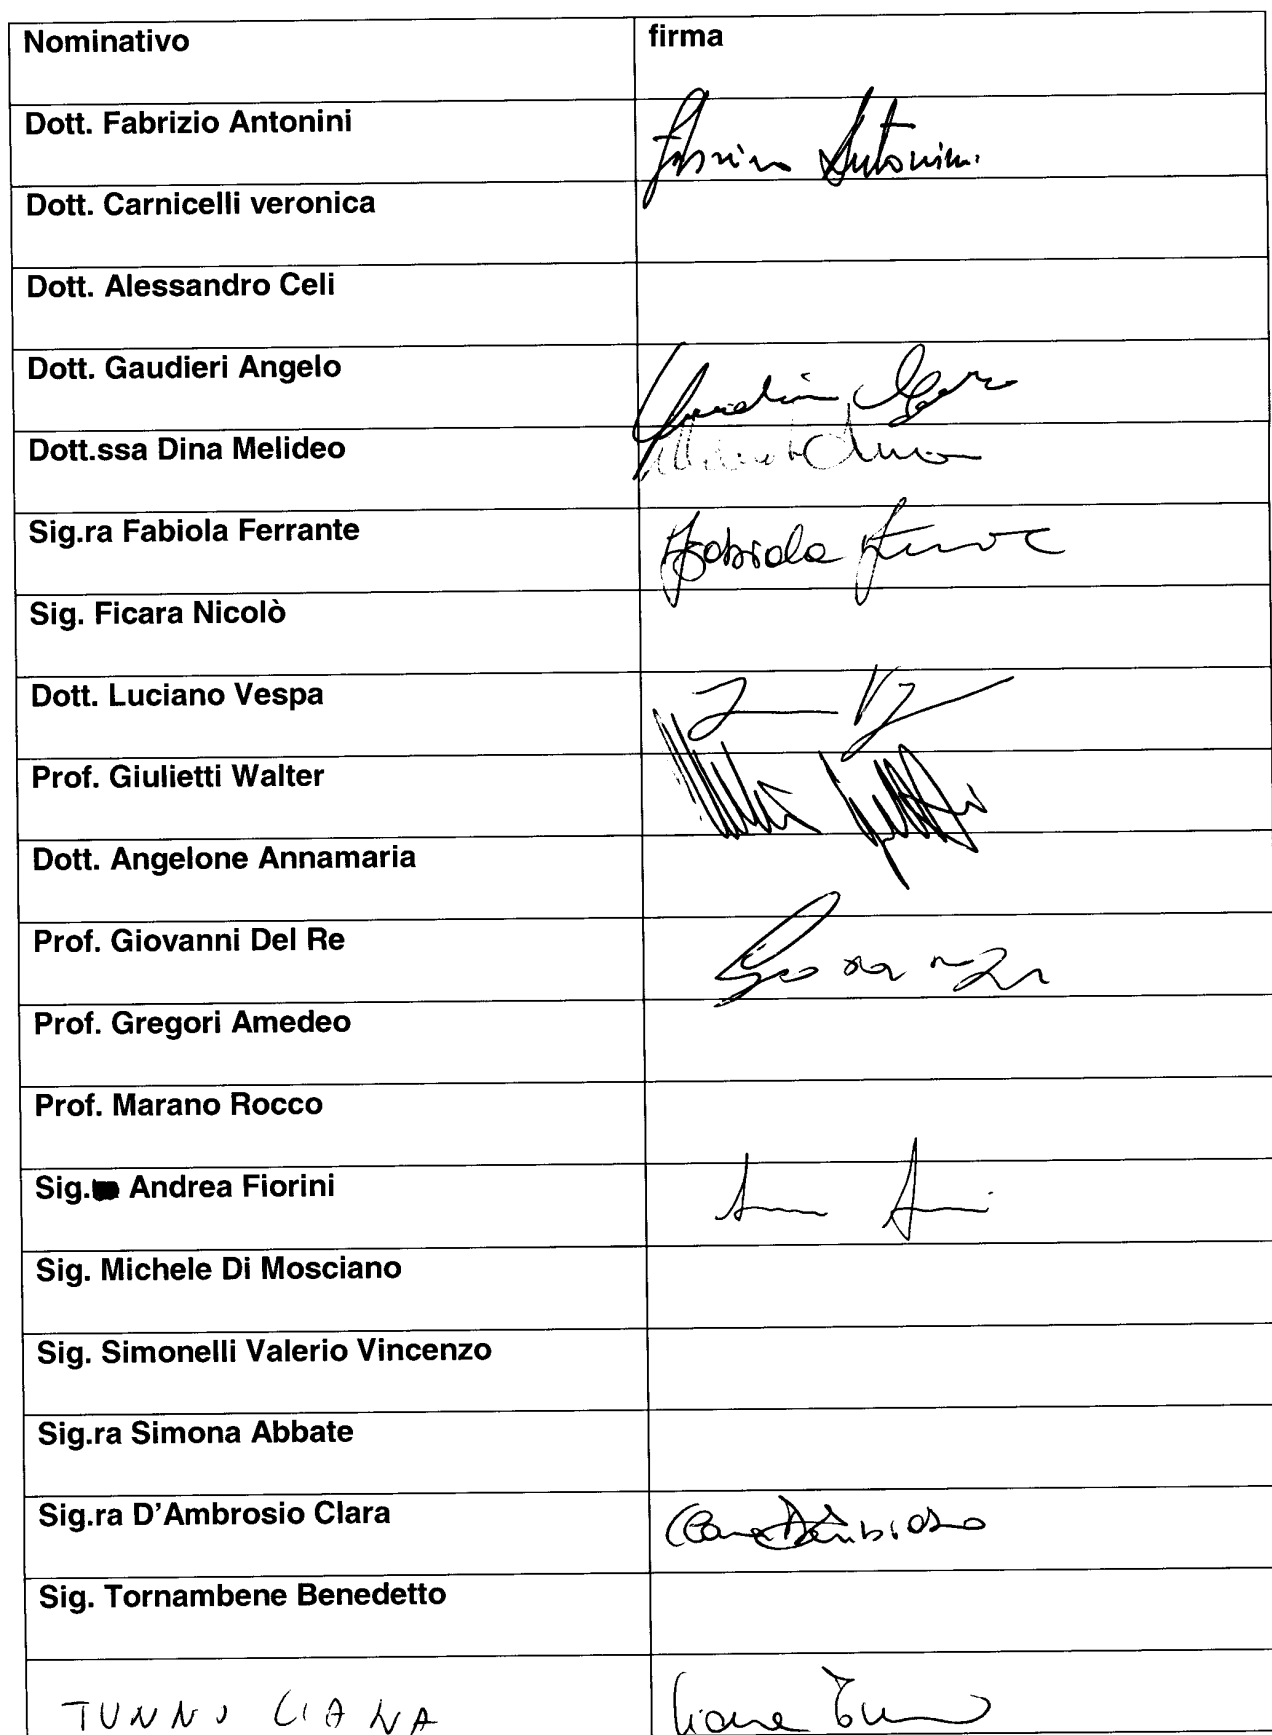 Nominativo firma
Dott. Fabrizio Antonini Fabrizio Antonini
Dott. Carnicelli veronica
Dott. Alessandro Celi
Dott. Gaudieri Angelo
Dott.ssa Dina Melideo
Sig.ra Fabiola Ferrante Fabiola
Sig. Ficara Nicolò
Dott. Luciano Vespa
Prof. Giulietti Walter
Dott. Angelone Annamaria
Prof. Giovanni Del Re
Prof. Gregori Amedeo
Prof. Marano Rocco
Sig. Andrea Fiorini
Sig. Michele Di Mosciano
Sig. Simonelli Valerio Vincenzo
Sig.ra Simona Abbate
Sig.ra D'Ambrosio Clara Clara D'Ambrosio
Sig. Tornambene Benedetto
TUNNO LIANA Liana Tunno